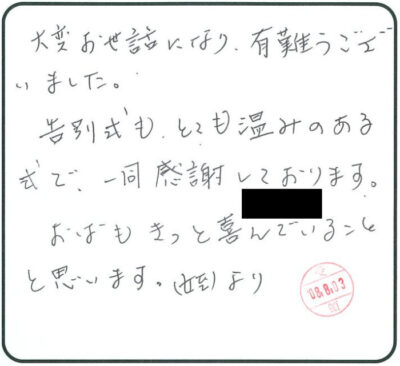 大変お世話になり、有難うござ
いました。
告別式も、とても温みのある
式で、一同感謝しております。
おばもきっと喜んでいること
と思います。(姪)より
08.8.03